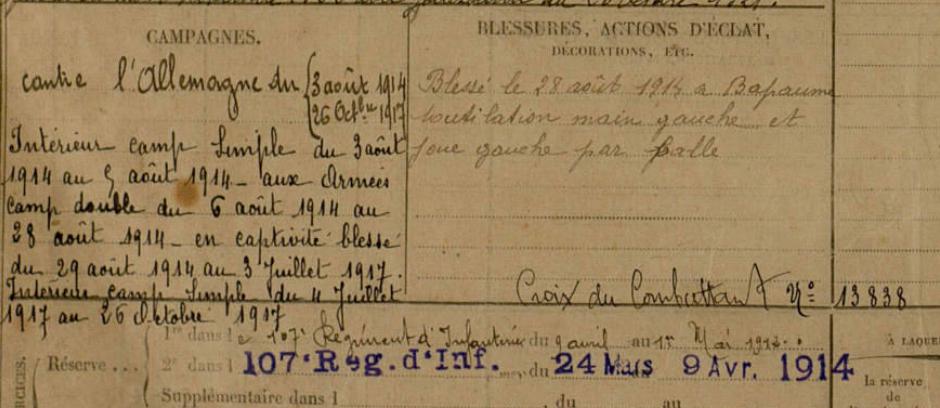 CAMPAGNES.
contre l'Allemagne du {3 août 1914
26 Octbre 1917
Intérieur camp Simple du 3 août
1914 au 5 août 1914 - aux Armées
camp double du 6 août 1914 au
28 août 1914 - en captivité blessé
du 29 août 1914 au 3 Juillet 1917.
Intérieur camp Simple du 4 Juillet
1917 au 26 Octobre 1917
BLESSURES, ACTIONS D'ÉCLAT,
DÉCORATIONS, ETC.
Blessé le 28 août 1914 a Bapaume
mutilation main gauche et
joue gauche par balle
Croix du Combattant No 13838
Réserve ...
1re dans le 107e Régiment d'Infanterie du 9 avril au 1er Mai 1912.
2e dans l 107e Rég. d'Inf. du 24 Mars 9 Avr. 1914
Supplémentaire dans l du au
À LAQUE
la réserve
de